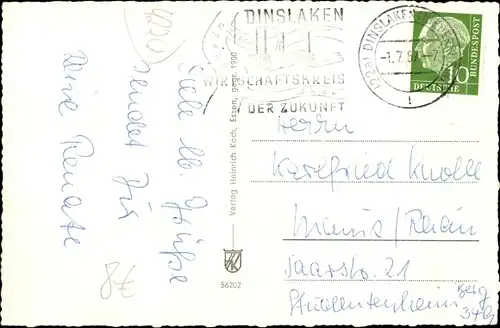 DINSLAKEN
WIRTSCHAFTSKREIS
DER ZUKUNFT
(22a) DINSLAKEN
-1.7.57
10
DEUTSCHE
BUNDESPOST
Viele lb. Grüße
sendet Dir
Deine Renate
8€
Verlag Heinrich Koch, Essen, gegr. 1900
56202
Herrn
Karlfried Knolle
Mainz/Rhein
Saarstr. 21
Studentenheim